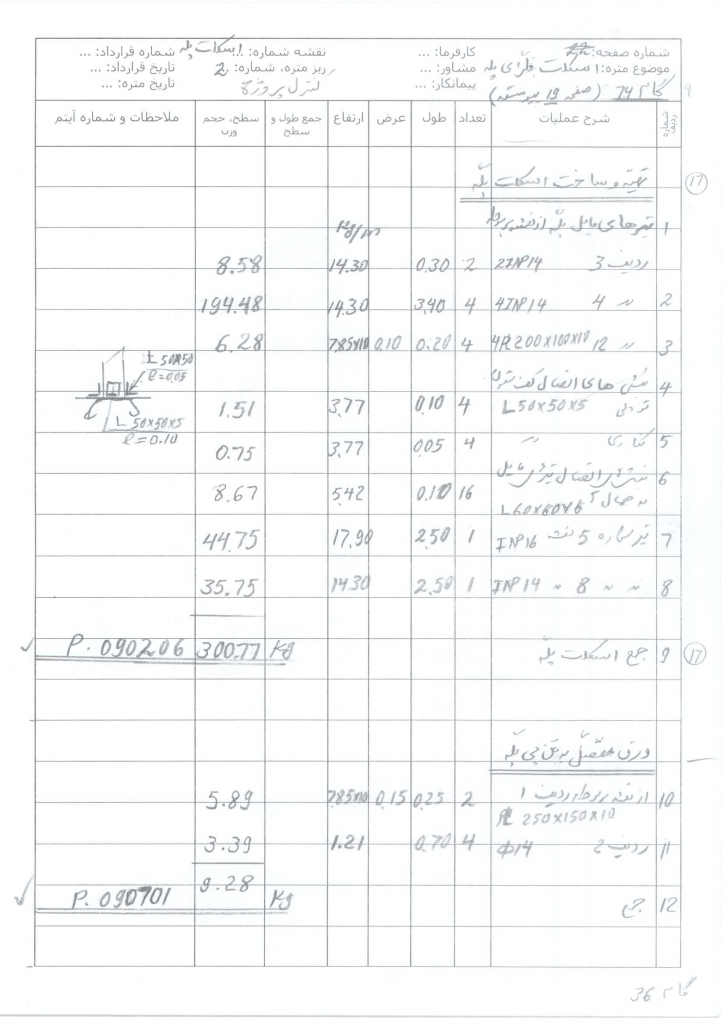 شماره صفحه: 22 کارفرما: ... نقشه شماره: ... اسکلت پله شماره قرارداد: ...
موضوع متره: اسکلت فلزی پله مشاور: ... ریز متره، شماره: 2 تاریخ قرارداد: ...
گام 34 (صفحه 19 پیوسته) پیمانکار: ... کنترل پروژه تاریخ متره: ...
شماره ردیف شرح عملیات تعداد طول عرض ارتفاع جمع طول و سطح سطح، حجم وزن ملاحظات و شماره آیتم
17 تهیه و ساخت اسکلت پله
1 تیرهای مایل پله از نقشه مربوطه Kg/m
ردیف 3 2INP14 2 0.30 14.30 8.58
2 " 4 4INP14 4 3.40 14.30 194.48
3 " 12 4PL200x100x10 4 0.20 0.10 7.85x10 6.28
L 50x50
l=0.05
4 نبشی های اتصال کف ستون
تودلی L50x50x5 4 0.10 3.77 1.51
L 50x50x5
l=0.10
5 کناری " 4 0.05 3.77 0.75
6 نبشی اتصال تیرهای مایل
به حمال L60x60x6 16 0.10 5.42 8.67
7 تیر شماره 5 نقشه INP16 1 2.50 17.90 44.75
8 " " 8 " INP14 1 2.50 14.30 35.75
17 9 جمع اسکلت پله Kg 300.77 P. 090206
ورق متصل به بتن چی پله
10 از نقشه مربوطه ردیف 1 2 0.25 0.15 7.85x10 5.89
PL 250x150x10
11 ردیف 2 Φ14 4 0.70 1.21 3.39
12 جمع Kg 9.28 P. 090701
گام 36